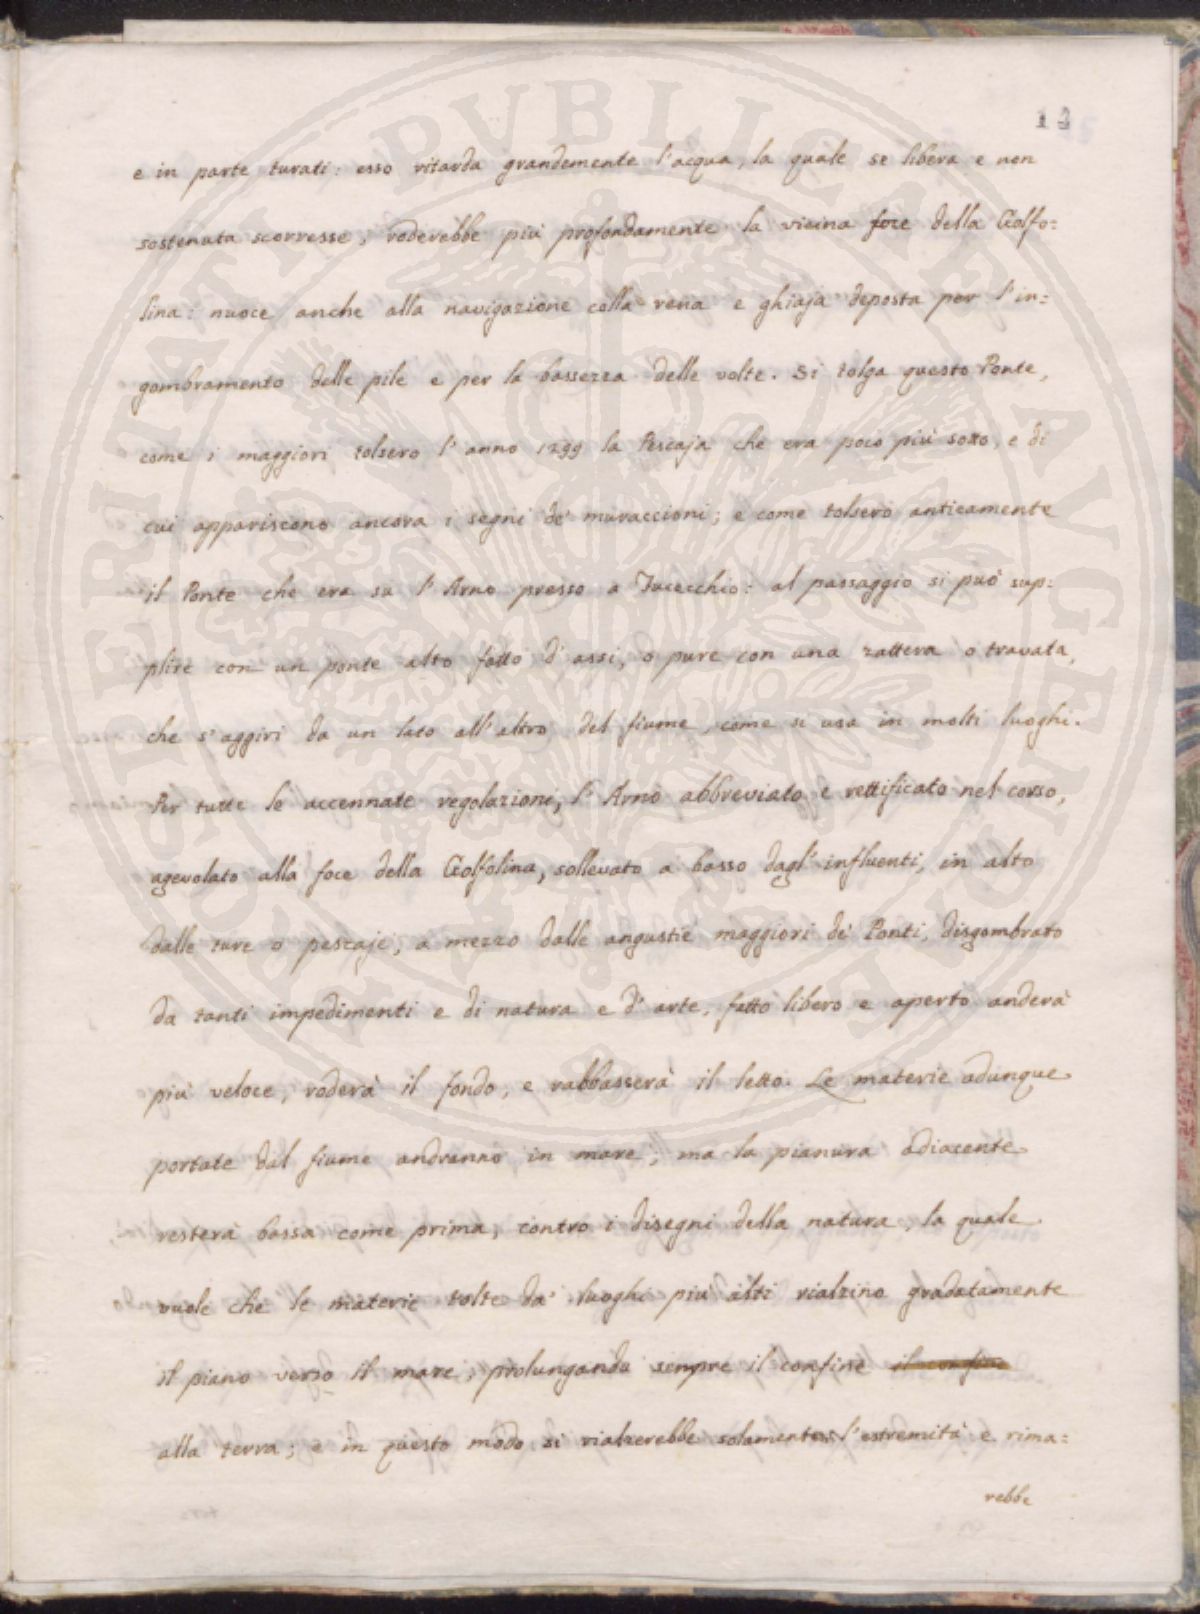 14
e in parte turati: esso ritarda grandemente l'acqua, la quale se libera e non
sostenuta scorresse, roderebbe più profondamente la vicina foce della Golfo=
lina: nuoce anche alla navigazione colla rena e ghiaja deposta per l'in=
gombramento delle pile e per la bassezza delle volte. Si tolga questo Ponte,
come i maggiori tolsero l'anno 1299 la Pescaja che era poco più sotto, e di
cui appariscono ancora i segni de' muraccioni; e come tolsero anticamente
il Ponte che era su l'Arno presso a Fucecchio: al passaggio si può sup=
plire con un ponte alto fatto d'assi, o pure con una zattera o travata,
che s'aggiri da un lato all'altro del fiume, come si usa in molti luoghi.
Per tutte le accennate regolazioni, l'Arno abbreviato e rettificato nel corso,
agevolato alla foce della Golfolina, sollevato a basso dagl'influenti, in alto
dalle ture o pescaje, a mezzo dalle angustie maggiori de' Ponti, disgombrato
da tanti impedimenti e di natura e d'arte, fatto libero e aperto anderà
più veloce, roderà il fondo, e rabbasserà il letto. Le materie adunque
portate dal fiume andranno in mare; ma la pianura adiacente
resterà bassa come prima, contro i disegni della natura, la quale
vuole che le materie tolte da' luoghi più alti rialzino gradatamente
il piano verso il mare, prolungando sempre il confine il confine
alla terra; e in questo modo si rialzerebbe solamente l'estremità e rima=
rebbe
PERITATI PVBLICAE AVGENDAE